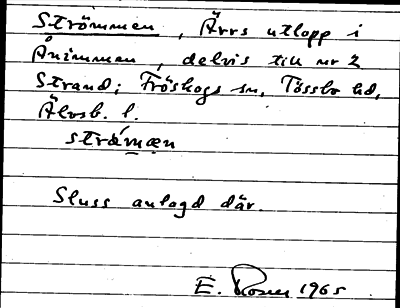 Strömmen, Ärrs utlopp i
Ånimmen, delvis till nr 2
Strand; Fröskogs sn, Tössbo hd,
Älvsb. l.
stræ̀mæn
Sluss anlagd där.
E. Rosen 1965